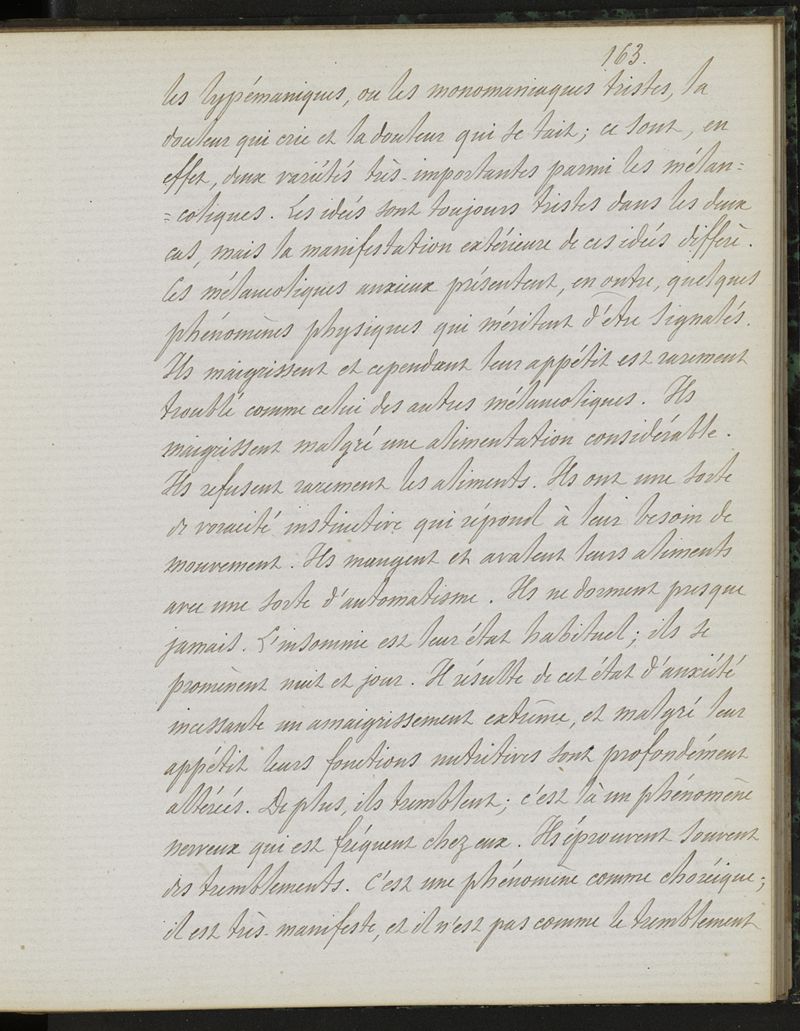 163.
les lypémaniques, ou les monomaniaques tristes, la
douleur qui crie et la douleur qui se tait; ce sont, en
effet, deux variétés très-importantes parmi les mélan=
=coliques. Les idées sont toujours tristes dans les deux
cas, mais la manifestation extérieure de ces idées diffère.
Ces mélancoliques anxieux présentent, en outre, quelques
phénomènes physiques qui méritent d'être signalés.
Ils maigrissent et cependant leur appétit est rarement
troublé comme celui des autres mélancoliques. Ils
maigrissent malgré une alimentation considérable.
Ils refusent rarement les aliments. Ils ont une sorte
de voracité instinctive qui répond à leur besoin de
mouvement. Ils mangent et avalent leurs aliments
avec une sorte d'automatisme. Ils ne dorment presque
jamais. L'insomnie est leur état habituel; ils se
promènent nuit et jour. Il résulte de cet état d'anxiété
incessante un amaigrissement extrême, et malgré leur
appétit leurs fonctions nutritives sont profondément
altérées. De plus, ils tremblent; c'est là un phénomène
nerveux qui est fréquent chez eux. Ils éprouvent souvent
des tremblements. C'est une phénomène comme choréique;
il est très-manifeste, et il n'est pas comme le tremblement